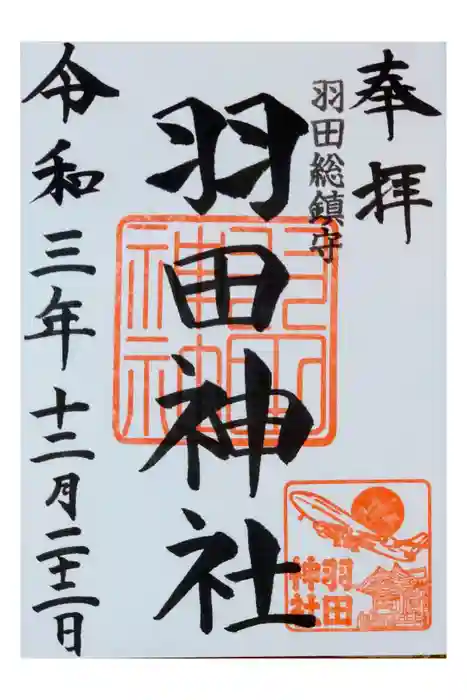 奉拝
羽田総鎮守
羽田神社
羽田
神社
令和三年十二月二十二日